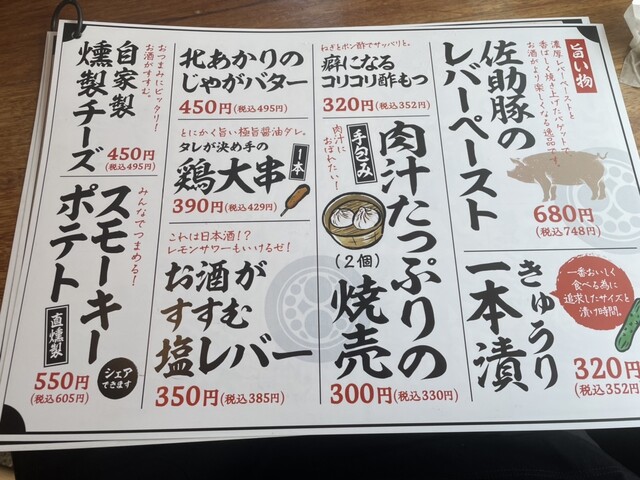 旨い物
濃厚レバーペーストと
香ばしく焼き上げたバゲットで
お酒がより楽しくなる逸品です。
佐助豚の
レバーペースト
680円
(税込748円)
一番おいしく
食べる為に
追求したサイズと
漬け時間。
きゅうり
一本漬
320円
(税込352円
ねぎとポン酢でサッパリと。
癖になる
コリコリ酢もつ
320円(税込352円)
肉汁に
おぼれたい!
手包み
肉汁たっぷりの
焼売
(2個)
300円(税込330円)
北あかりの
じゃがバター
450円(税込495円)
とにかく旨い極旨醤油ダレ。
タレが決め手の
鶏大串
一本
390円(税込429円)
これは日本酒!?
レモンサワーもいけるぜ!
お酒が
すすむ
塩レバー
350円(税込385円)
おつまみにピッタリ!
お酒がすすむ。
自家製
燻製チーズ
450円
(税込495円)
みんなでつまめる!
スモーキー
ポテト
直燻製
シェア
できます
550円
(税込605円)